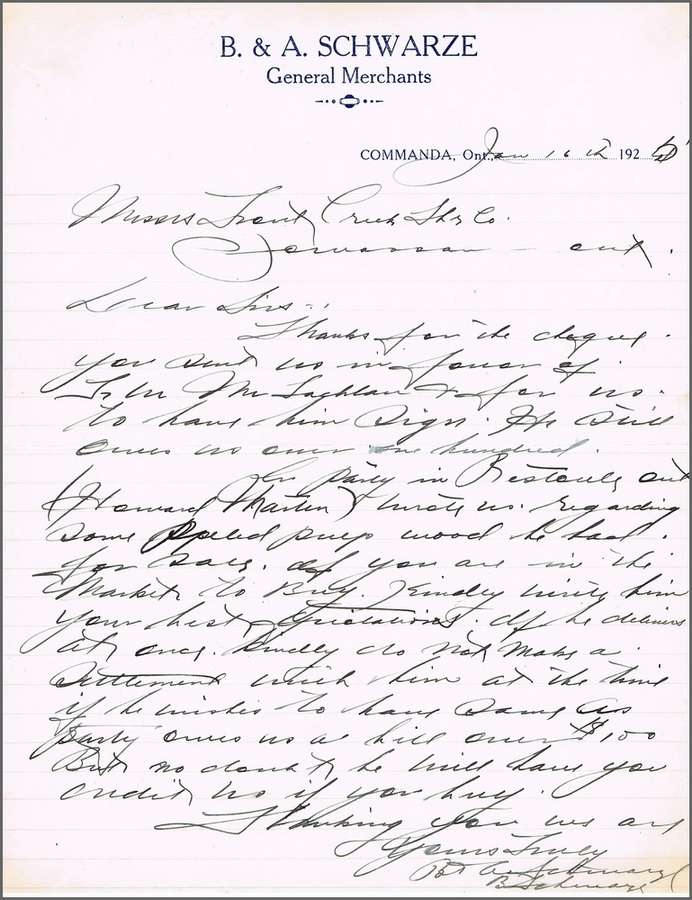 B. & A. SCHWARZE
General Merchants
COMMANDA, Ont., Jan 16th 192
Messrs Trout Creek Lbr Co.
Powassan - Ont.
Dear Sirs:
Thanks for the cheque.
you sent us in favour of
John McLachlan & for us.
to have him sign. He still
owes us over one hundred.
party in Restoule Ont
(Howard Martin) wrote us. regarding
some peeled pulp wood he had.
for sale. If you are in the
Market to Buy. Kindly write him
your best Quotations. If he delivers
at once. Kindly do not make a
Settlement with him at the time
if he wishes to have same as
party owes us a bill over $100
But no doubt he will have you
credit us if you buy.
Thanking you we are
Yours Truly
B & A Schwarze
B Schwarze